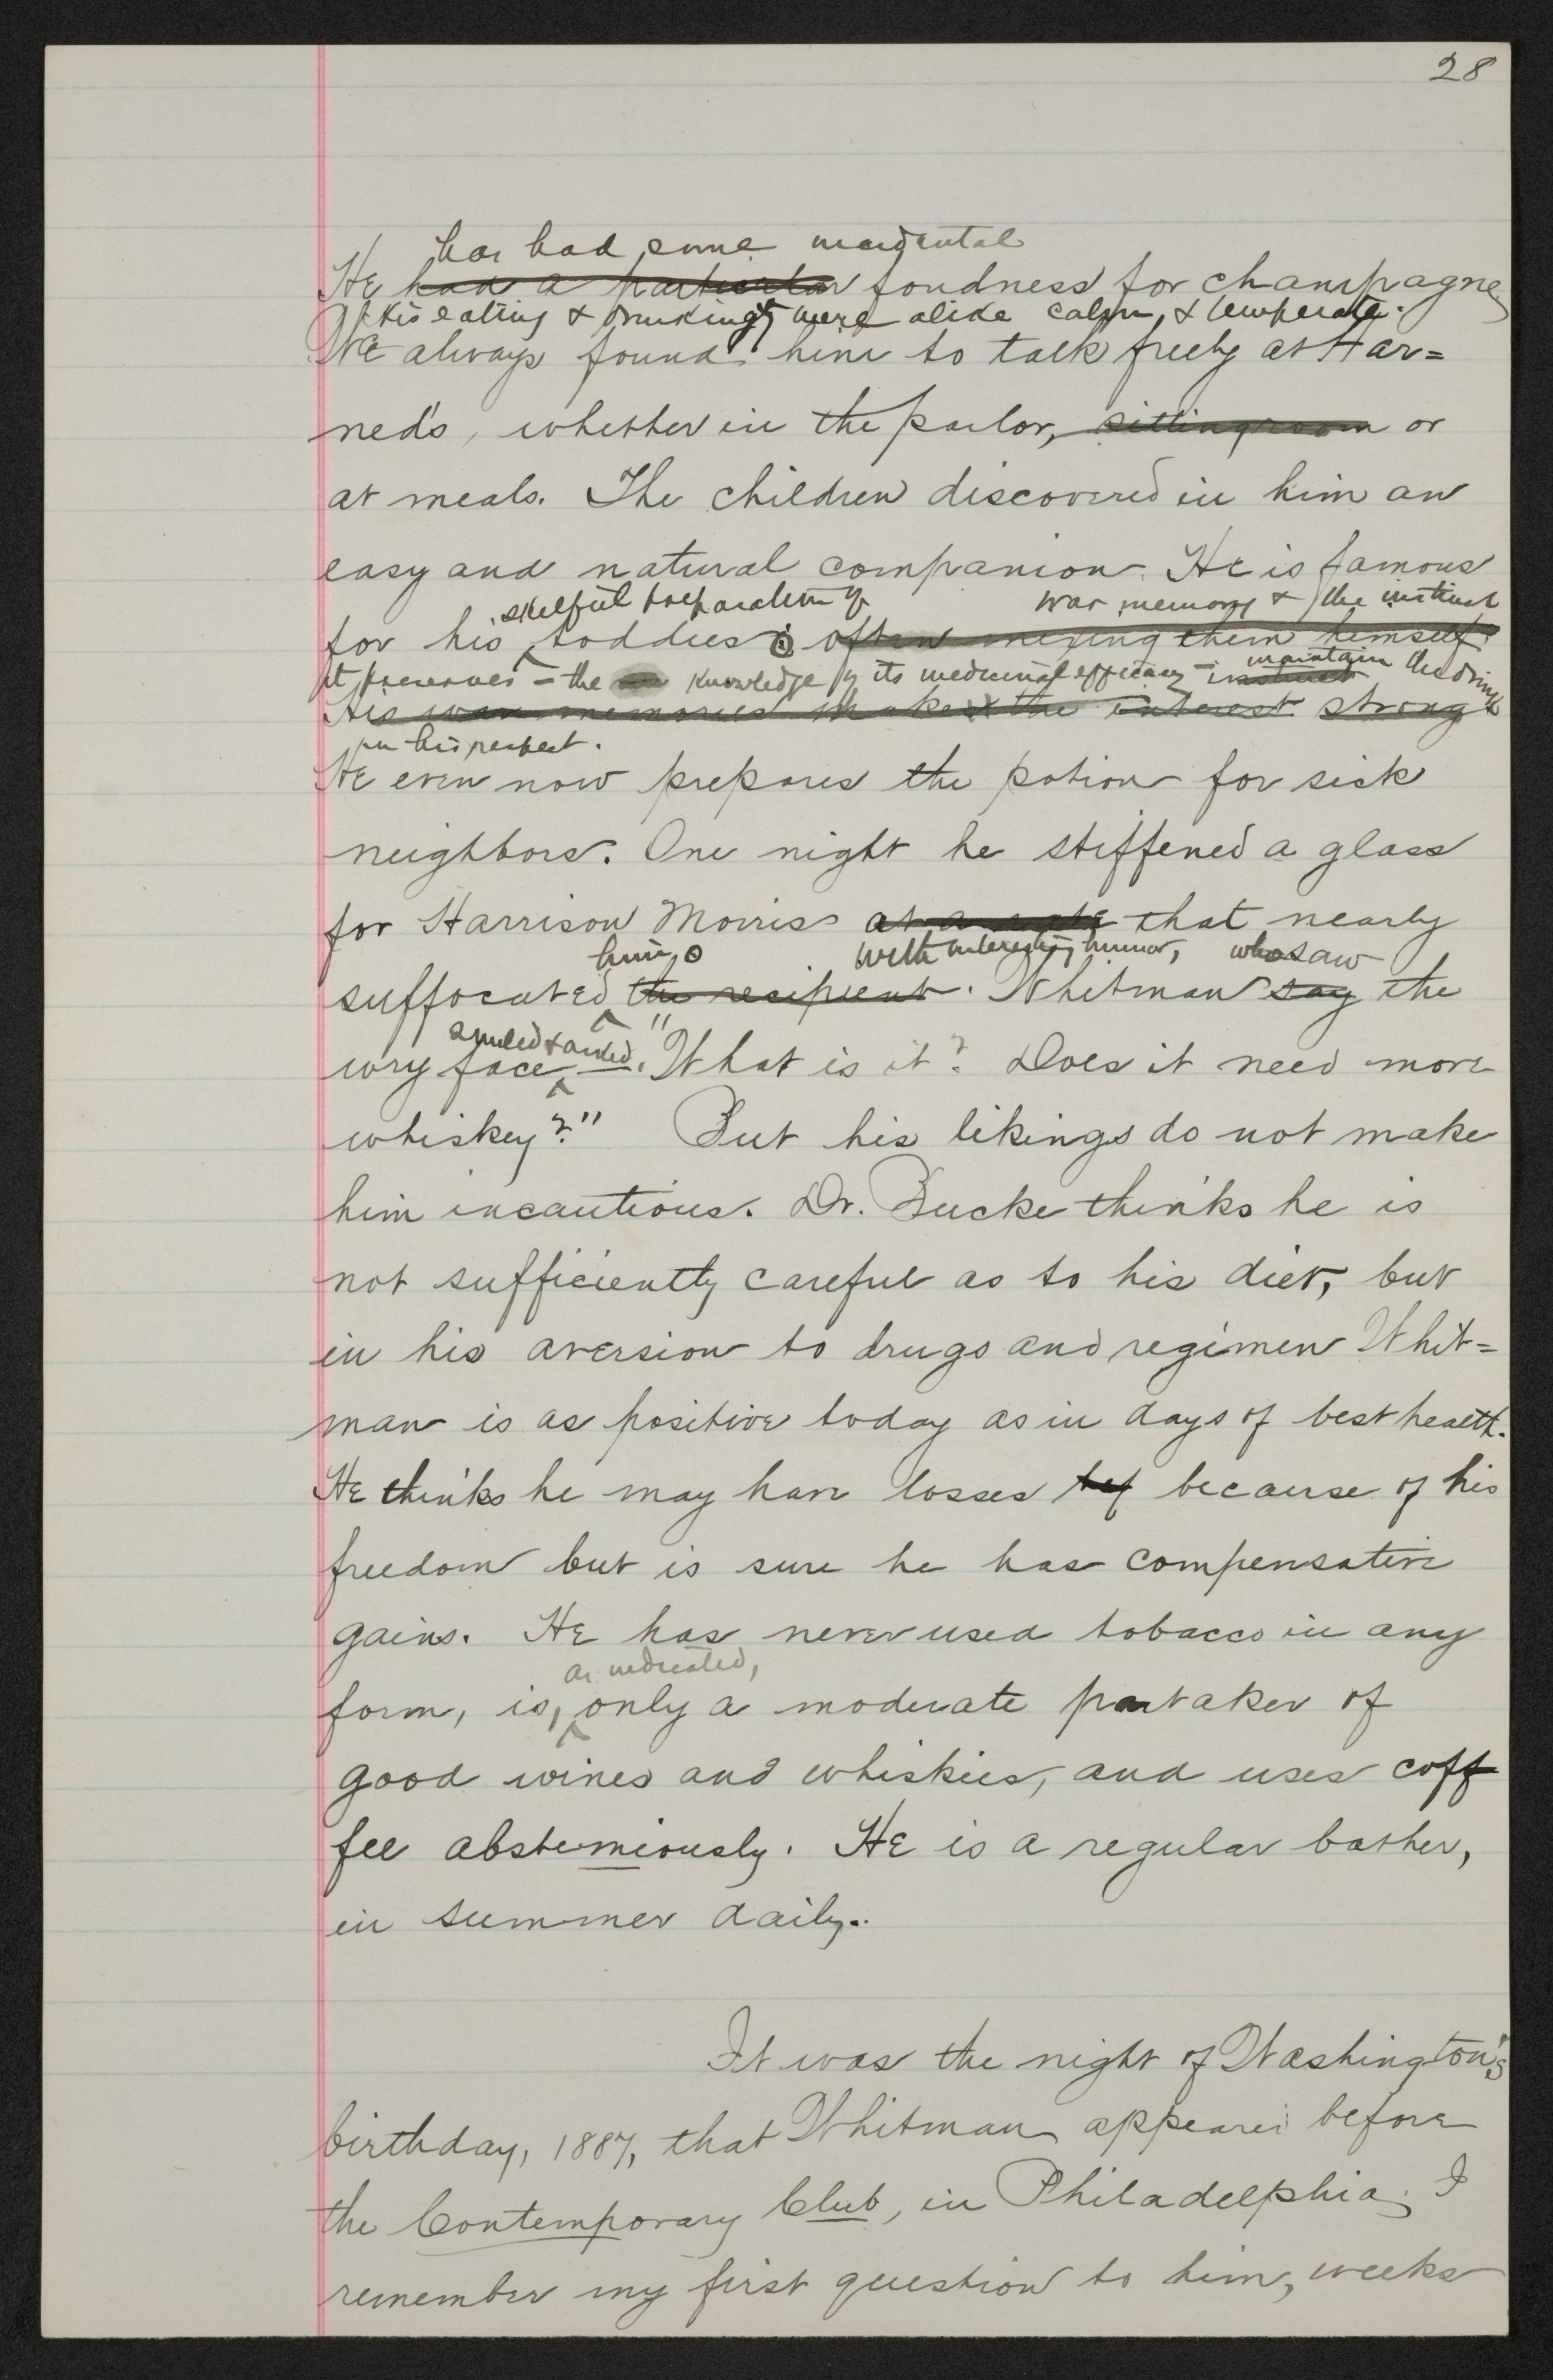 28
has had some incidental
He had a particular fondness for champagne
His eating & drinking were alike calm, & temperate.
We always found him to talk freely at Har=
ned's, whether in the parlor, sitting room or
at meals. The children discovered in him an
easy and natural companion. He is famous
skilful preparation of war memory & the instinct
for his toddies often mixing them himself.
it preserves – the knowledge of its medicinal efficacy – instinct maintain the drink
His war memories make the interest strong
in his respect.
He even now prepares the potion for sick
neighbors. One night he stiffened a glass
for Harrison Morris at a rate that nearly
him with interesting humor, who saw
suffocated the recipient. Whitman say the
smiled & asked
wry face – "What is it? Does it need more
whiskey?" But his likings do not make
him incautious. Dr. Bucke thinks he is
not sufficiently careful as to his diet, but
in his aversion to drugs and regimen Whit=
man is as positive today as in days of best health.
He thinks he may have losses because of his
freedom but is sure he has compensative
gains. He has never used tobacco in any
as indicated,
form, is, only a moderate partaker of
good wines and whiskies, and uses coff
fee abstemiously. He is a regular bather,
in summer daily.
It was the night of Washington's
birthday, 1887, that Whitman appeared before
the Contemporary Club, in Philadelphia. I
remember my first question to him, weeks